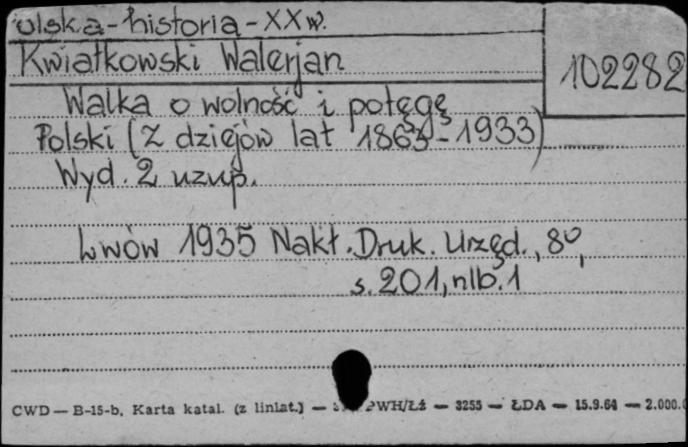 olska-historia-XX w.
Kwiatkowski Walerjan
102282
Walka o wolność i potęgę
Polski (Z dziejów lat 1863-1933)
Wyd. 2 uzup.
Lwów 1935 Nakł. Druk. Urzęd., 8°,
s. 201, nlb. 1
CWD — B-15-b, Karta katal. (z liniat.) — PWH/Łź — 3255 — ŁDA — 15.9.64 — 2.000.